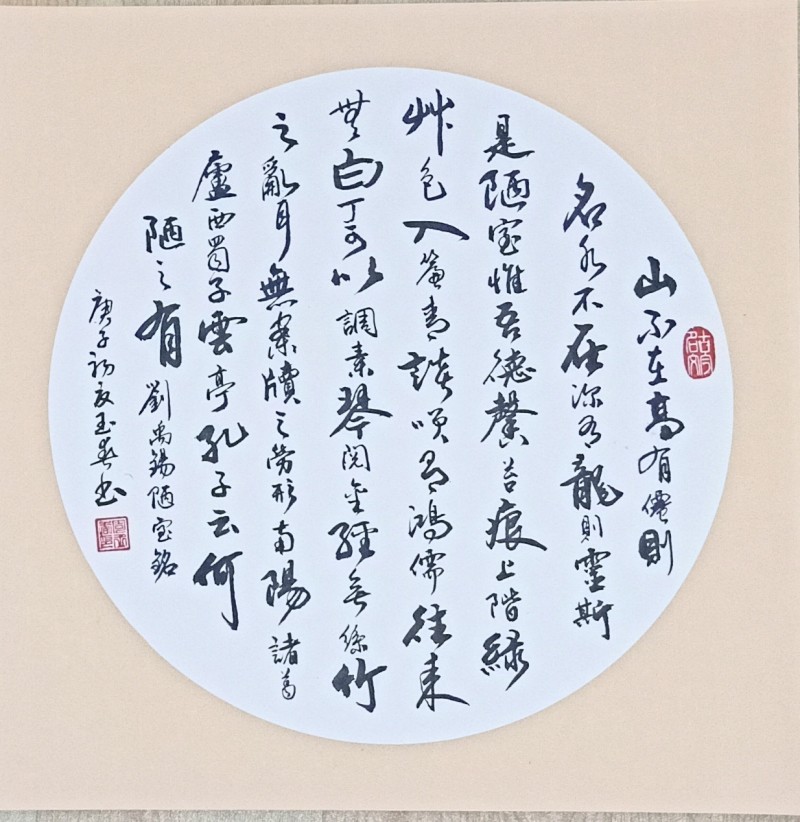 山不在高有僊則
名水不在深有龍則靈斯
是陋室惟吾德馨苔痕上階綠
艸色入簾青談咲有鴻儒往來
無白丁可以調素琴閱金經無絲竹
之亂耳無案牘之勞形南陽諸葛
廬西蜀子雲亭孔子云何
陋之有劉禹錫陋室銘
庚子初夏玉春書